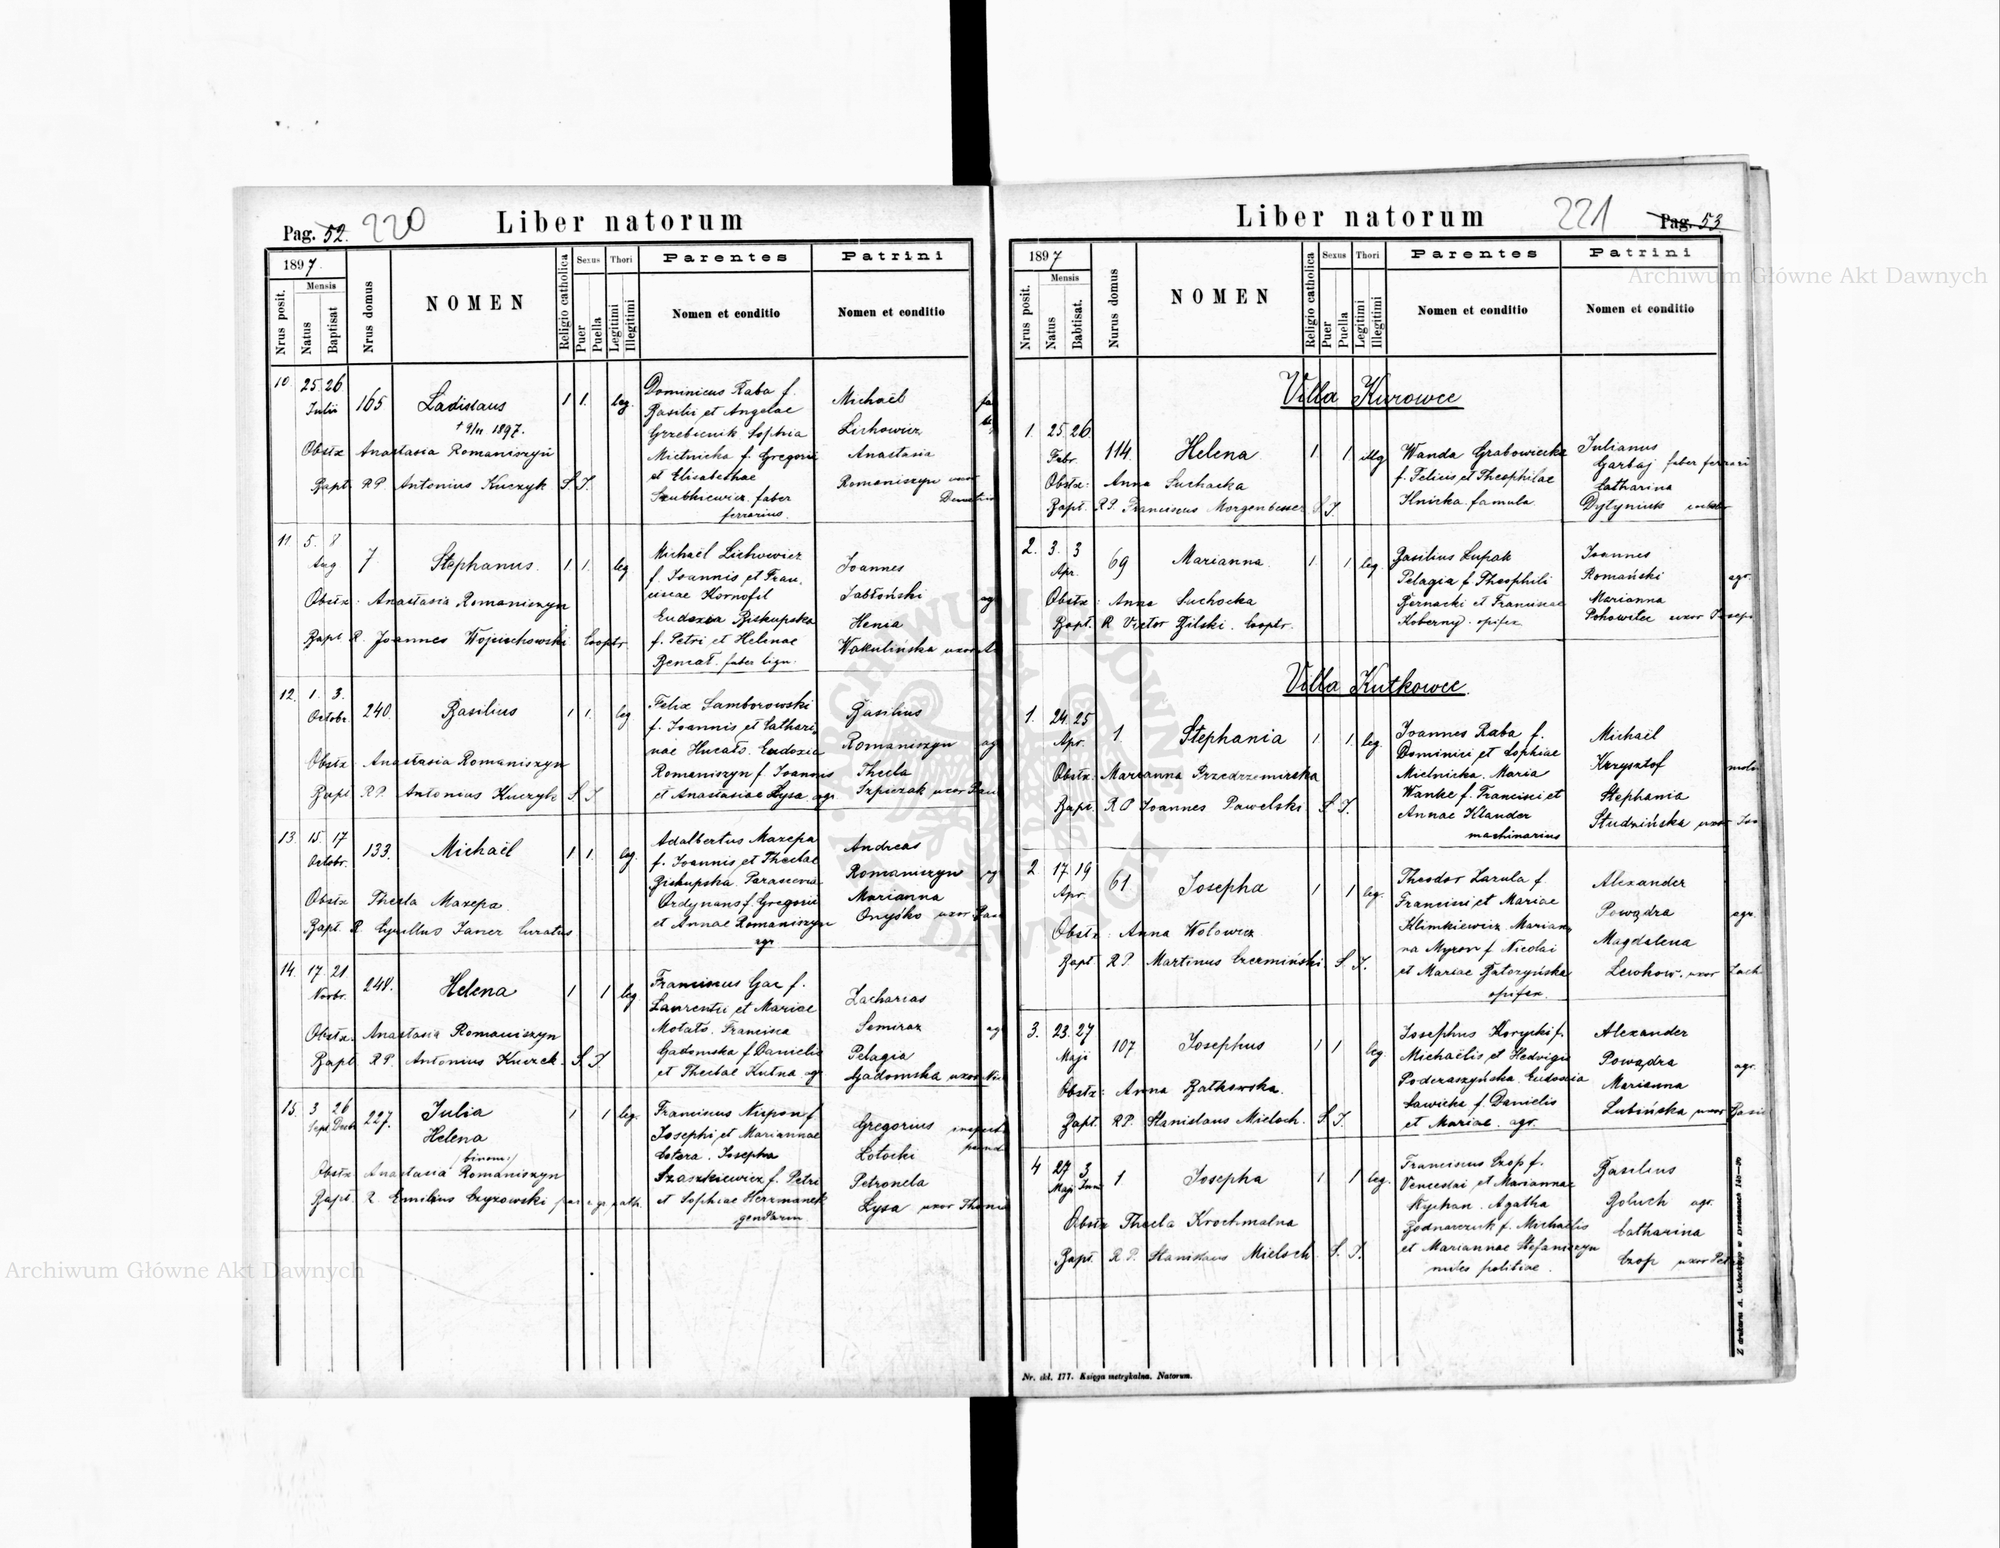 Pag. 52. 220
Liber natorum
1897.
Nrus posit.
Mensis
Natus
Baptisat
Nrus domus
NOMEN
Religio catholica
Sexus
Puer
Puella
Thori
Legitimi
Illegitimi
Parentes
Nomen et conditio
Patrini
Nomen et conditio
10. 25 26 Julii 165 Ladislaus 1 1. leg.
Dominicus Raba f.
Basilii et Angelae
Grzebienik Sophia
Mielnicka f. Gregorii
et Elisabethae
Szubkiewicz faber
ferrarius.
Michaël
Lichowicz
Anastasia
Romaniszyn uxor
Obstx Anastasia Romaniszyn
Bapt. R.P. Antonius Kuczyk S.J.
11 5. 8 Aug 7 Stephanus. 1. 1. leg
Michaël Lichowicz
f. Joannis et Fran.
ciscae Kornofil
Eudoxia Biskupska
f. Petri et Helenae
Bencat. faber lign.
Joannes
Jabłoński
Henia
Wakulińska uxor
Obstx: Anastasia Romaniszyn
Bapt R. Joannes Wojciechowski Cooptr.
12. 1. 3. Octobr. 240. Basilius 1 1. leg
Felix Samborowski
f. Joannis et Cathari-
nae Hucałs. Eudoxia
Romaniszyn f. Joannis
et Anastasiae Lysa agr.
Basilius
Romaniszyn
Thecla
Szpiczak uxor
Obstx. Anastasia Romaniszyn
Bapt R.P. Antonius Kuczyk S.J
13. 15. 17 Octobr. 133. Michaël 1 1. leg.
Adalbertus Mazepa
f. Joannis et Theclae
Biskupska. Parascevia
Ordynans f. Gregorii
et Annae Romaniszyn
agr
Andreas
Romaniszyn
Marianna
Onyśko uxor
Obstx Thecla Mazepa
Bapt. R Cyrillus Janer Curatus
14. 17. 21. Novbr. 248. Helena 1 1 leg
Franciscus Gac f.
Laurentii et Mariae
Motałs. Francisca
Gadomska f. Danielis
et Theclae Kutna. agr
Zacharias
Semiraz
Pelagia
Gadomska uxor
Obstx. Anastasia Romaniszyn
Bapt R.P. Antonius Kuczek. S.J.
15. 3 Sept. 26 Decb 227. Julia 1 1 leg.
Helena
/binom:/
Franciscus Nupon f
Josephi et Mariannae
Cotera. Josepha
Szaszkiewicz f. Petri
et Sophiae Herzmanek
gendarm
Gregorius
Łotocki
Petronela
Lysa uxor
Obstx Anastasia Romaniszyn
Bapt. R. Emilius Czyzowski
Liber natorum
221 Pag. 53
1897
Nrus posit.
Mensis
Natus
Babtisat.
Nurus domus
NOMEN
Religio catholica
Sexus
Puer
Puella
Thori
Legitimi
Illegitimi
Parentes
Nomen et conditio
Patrini
Nomen et conditio
Villa Kurowce
1. 25. 26. Febr. 114. Helena. 1. 1 illeg
Wanda Grabowiecka
f. Felicis et Theophilae
Hnicka. famula
Julianus
Garbaj faber ferrari
Catharina
Dytyniuk
Obstx: Anna Suchacka
Bapt. R.P. Franciscus Morgenbesser S.J.
2. 3. 3 Apr. 69 Marianna. 1. 1 leg.
Basilius Lupak
Pelagia f. Theophili
Biernacki et Franciscae
Koberny. opifex
Joannes
Romański agr.
Marianna
Pohowitec uxor
Obstx: Anna Suchocka
Bapt. R Victor Bilski. Cooptr.
Villa Kutkowce.
1. 24. 25 Apr. 1. Stephania 1. 1. leg.
Joannes Raba f.
Dominici et Sophiae
Mielnicka. Maria
Wanke f. Francisci et
Annae Klauder
machinarius
Michaël
Krzysztof
Stephania
Studzińska uxor
Obstx: Marianna Przedrzemirska
Bapt. R P Joannes Pawelski. S.J.
2 17. 19 Apr. 61. Josepha 1 1 leg.
Theodor Zazula f.
Francisci et Mariae
Klimkiewicz. Marian-
na Myron f. Nicolai
et Mariae Batoryńska
opifex.
Alexander
Powądra agr.
Magdalena
Lewkow. uxor
Obstx: Anna Wołowicz
Bapt R.P. Martinus Czermiński S.J.
3. 23. 27 Maji 107 Josephus 1 1 leg.
Josephus Korycki f.
Michaëlis et Hedvigis
Poderaszyńska. Eudoxia
Sawicka f. Danielis
et Mariae. agr.
Alexander
Powądra agr.
Marianna
Lubińska uxor
Obstx: Anna Batkowska.
Bapt. R.P. Stanislaus Mieloch. S.J.
4 27 Maji 3 Juni 1 Josepha 1 1 leg.
Franciscus Czop f.
Venceslai et Mariannae
Kychan. Agatha
Bodnarczuk f. Michaëlis
et Mariannae Stefaniszyn
miles politiae.
Basilius
Boluch agr.
Catharina
Czop uxor
Obstx Thecla Krochmalna
Bapt. R.P. Stanislaus Mieloch S.J.
Nr. skł. 177. Księga metrykalna. Natorum.
Archiwum Główne Akt Dawnych
Archiwum Główne Akt Dawnych
ARCHIWUM GŁÓWNE AKT DAWNYCH